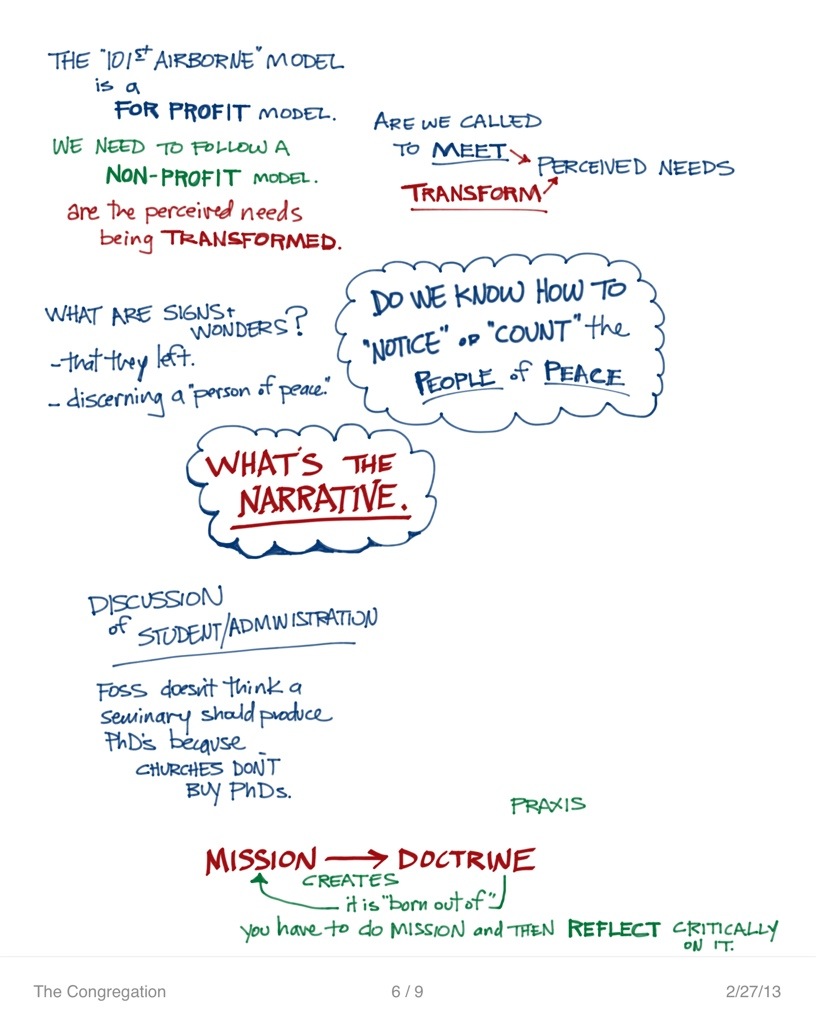 THE "101st AIRBORNE" MODEL
is a
FOR PROFIT MODEL.
WE NEED TO FOLLOW A
NON-PROFIT MODEL.
are the perceived needs
being TRANSFORMED.
ARE WE CALLED
TO MEET PERCEIVED NEEDS
TRANSFORM
WHAT ARE SIGNS +
WONDERS?
- that they left.
- discerning a "person of peace."
DO WE KNOW HOW TO
"NOTICE" or "COUNT" the
PEOPLE of PEACE
WHAT'S THE
NARRATIVE.
DISCUSSION
of STUDENT/ADMINISTRATION
FOSS doesn't think a
seminary should produce
PhD's because
CHURCHES DON'T
BUY PhDs.
PRAXIS
MISSION → DOCTRINE
CREATES
it is "born out of"
you have to do MISSION and THEN REFLECT CRITICALLY
ON IT.
The Congregation 6 / 9 2/27/13